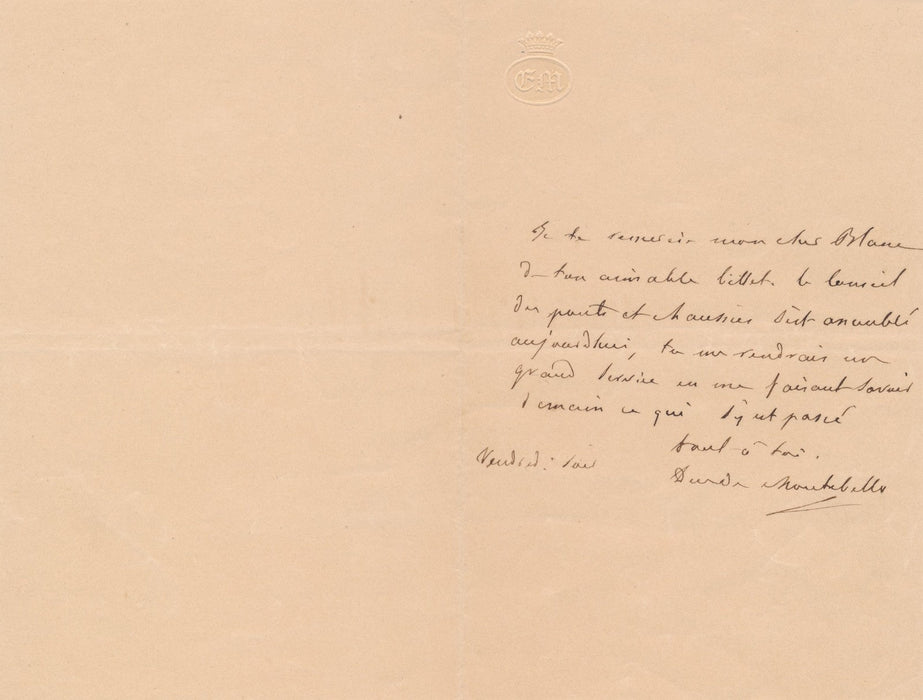 EM
Je te remercie mon cher Blanc
de ton aimable billet. le Conseil
des ponts et chaussées s'est assemblé
aujourdhui, tu me rendrais un
grand service en me faisant savoir
demain ce qui s'y est passé
tout à toi.
Vendredi soir
Duc de Montebello